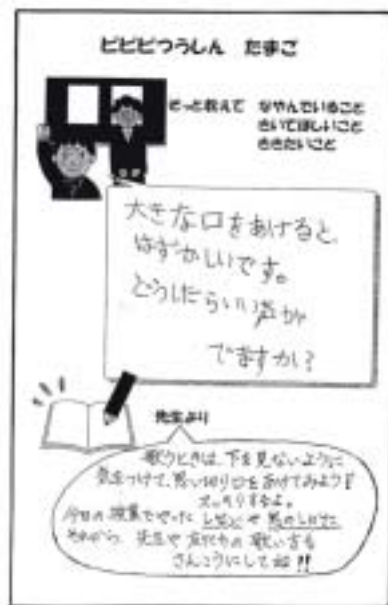 ビビビつうしん たまご
そっと教えて なやんでいること
きいてほしいこと
ききたいこと
大きな口をあけると、
はずかしいです。
どうしたらいい声が
でますか?
先生より
歌うときは、下を見ないように
気をつけて、思い切り口をあけてみよう!
スッキリするよ。
今日の授業でやった
それから、先生や友だちの歌い方も
さんこうにしてね!!